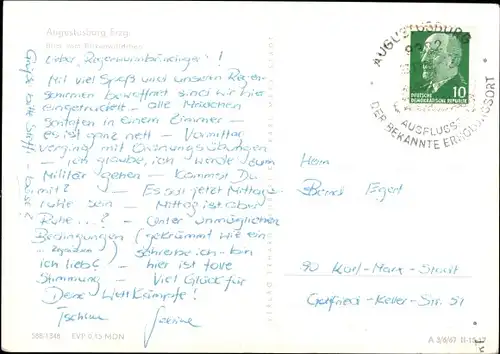 Augustusburg Erzg.
Lieber Regenwurmbändiger!
Mit viel Spaß und unsern Regen-
schirmen bewaffnet sind wir hier
eingetrudelt - alle Mädchen
schlafen in einem Zimmer -
es ist ganz nett - Vormittag
verging mit Ordnungsübungen
- ich glaube, ich werde zum
Militär gehen - Kommst Du
mit? - Es soll jetzt Mittags-
ruhe sein - Mittag ist aber
Ruhe...? - Unter unmöglichen
Bedingungen (gekrümmt wie ein
) schreibe ich - bin
ich lieb? - hier ist tolle
Stimmung - Viel Glück für
Deine Wettkämpfe!
Tschüß
AUGUSTUSBURG
AUSFLUGS-
DER BEKANNTE ERHOLUNGSORT
10
DEUTSCHE
DEMOKRATISCHE REPUBLIK
Herrn
Bernd Egert
90 Karl-Marx-Stadt
Gottfried-Keller-Str. 51
EVP 0,15 MDN